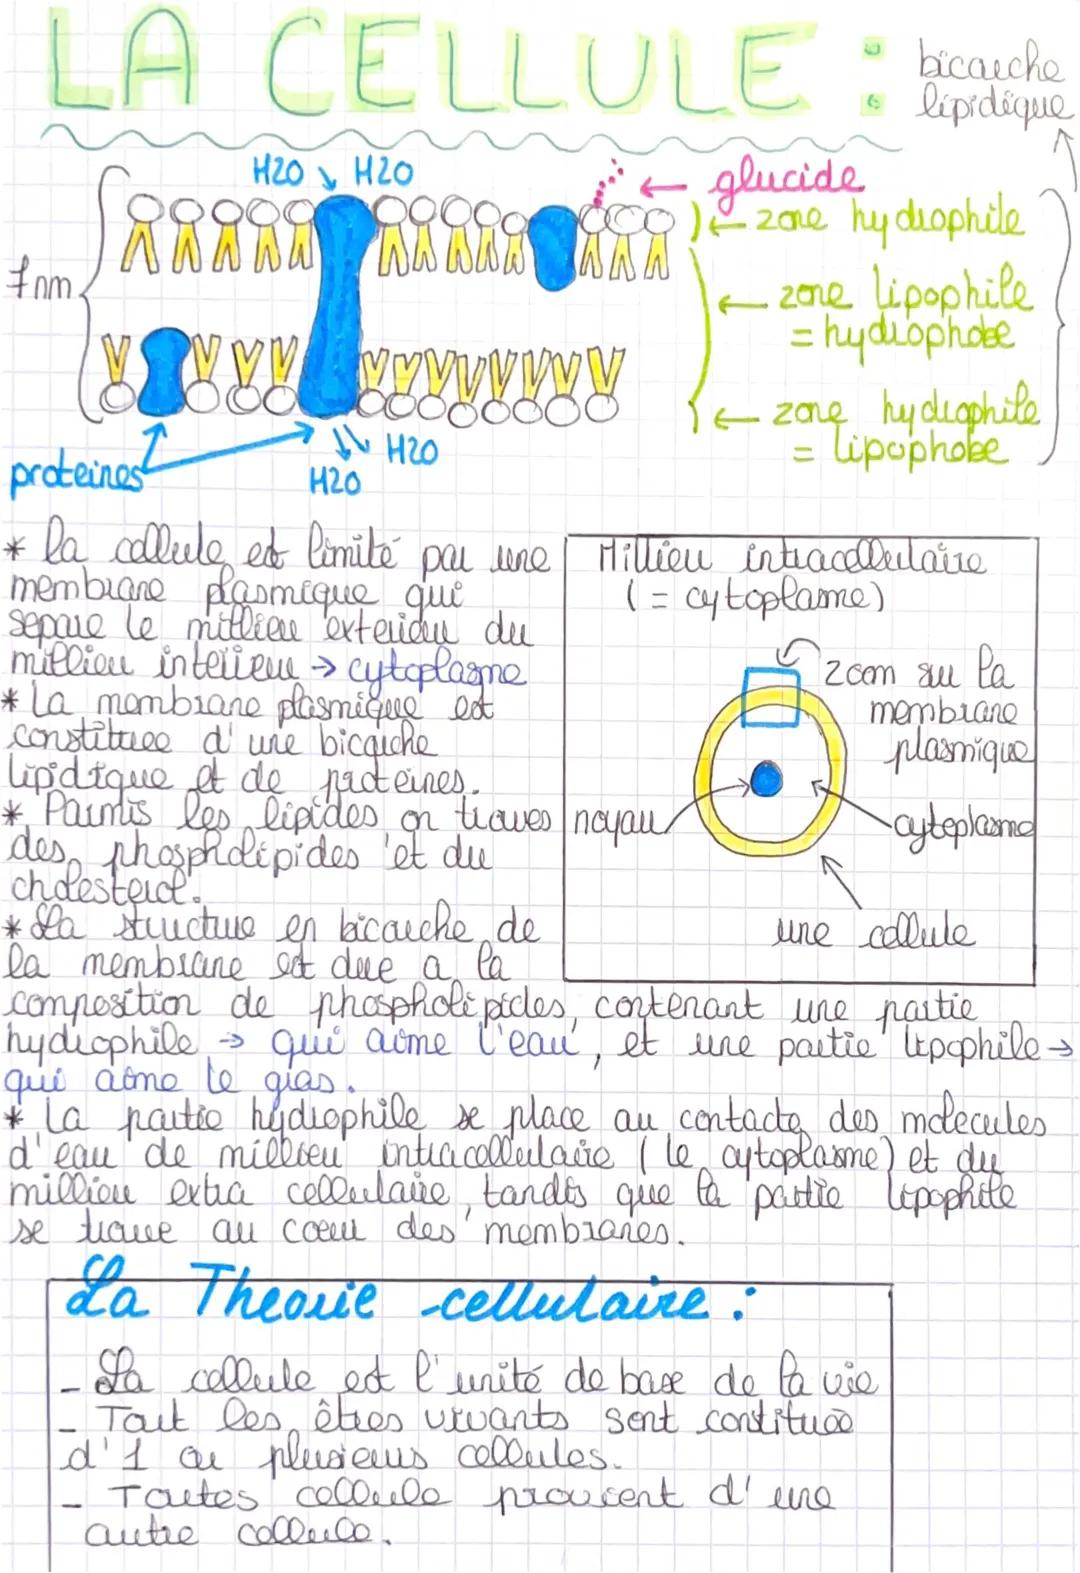 LA CELLULE :
bicouche
lipidique
H2O H2O
glucide
zone hydrophile
7nm
zone lipophile
= hydrophobe
zone hydrophile
= lipophobe
H2O
proteines
H2O
* la cellule est limité par une
membrane plasmique qui
separe le millieu exterieur du
millieu interieur → cytoplasme
* La membrane plasmique est
constituee d'une bicouche
lipidique et de proteines.
* Parmis les lipides on trouves
des phospholipides et du
cholesterol.
* La structure en bicouche de
la membrane est due a la
composition de phospholipides, contenant une partie
hydrophile → qui aime l'eau, et une partie lipophile →
qui aime le gras.
* La partie hydrophile se place au contacte des molecules
d'eau de millieu intracellulaire (le cytoplasme) et du
millieu extra cellulaire, tandis que la partie lipophile
se trouve au coeur des membranes.
Millieu intracellulaire
( = cytoplasme)
zoom sur la
membrane
plasmique
noyau
cytoplasme
une cellule
La Theorie cellulaire :
- La cellule est l'unité de base de la vie
- Tout les êtres vivants sont constitués
d'1 ou plusieurs cellules.
- Toutes cellule provient d'une
autre cellule.